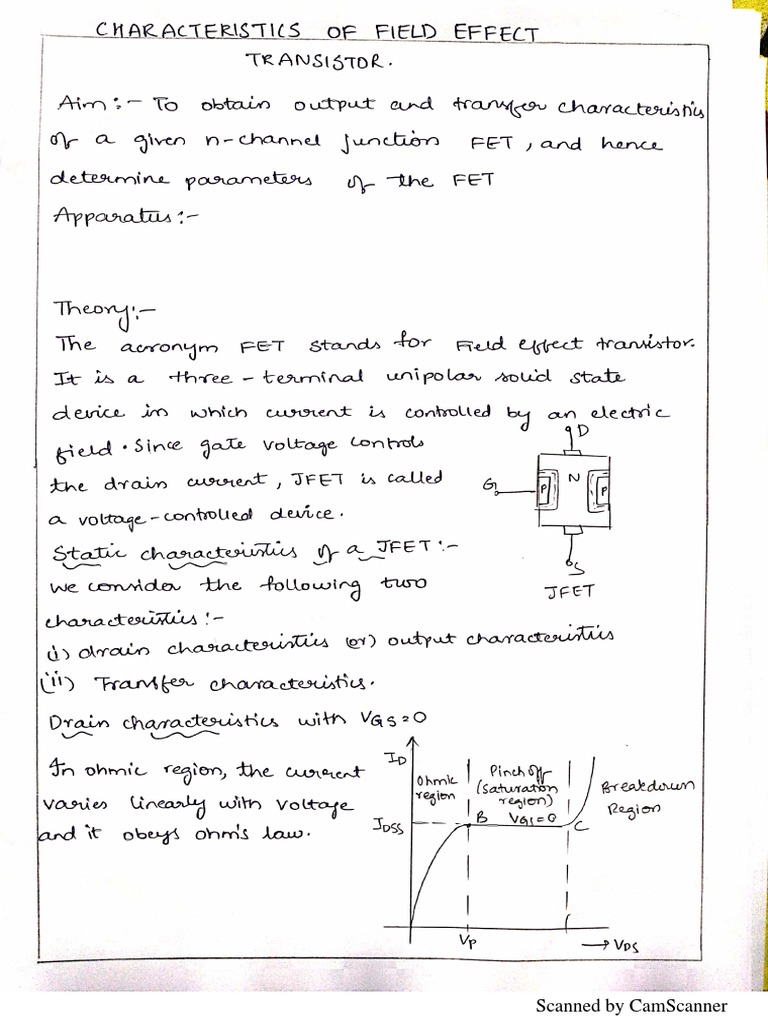 CHARACTERISTICS OF FIELD EFFECT
TRANSISTOR.
Aim:- To obtain output and transfer characteristics
of a given n-channel junction FET, and hence
determine parameters of the FET
Apparatus:-
Theory:-
The acronym FET stands for Field effect transistor.
It is a three-terminal unipolar solid state
device in which current is controlled by an electric
field. Since gate voltage controls
the drain current, JFET is called
a voltage-controlled device.
D
G
P
N
P
S
JFET
Static characteristics of a JFET:-
We consider the following two
characteristics:-
(i) drain characteristics (or) output characteristics
(ii) Transfer characteristics.
Drain characteristics with VGS=0
In ohmic region, the current
varies linearly with voltage
and it obeys ohm's law.
ID
Ohmic
region
Pinch off
(saturation
region)
Breakdown
Region
IDSS
B
VGS=0
C
VP
→ VDS
Scanned by CamScanner